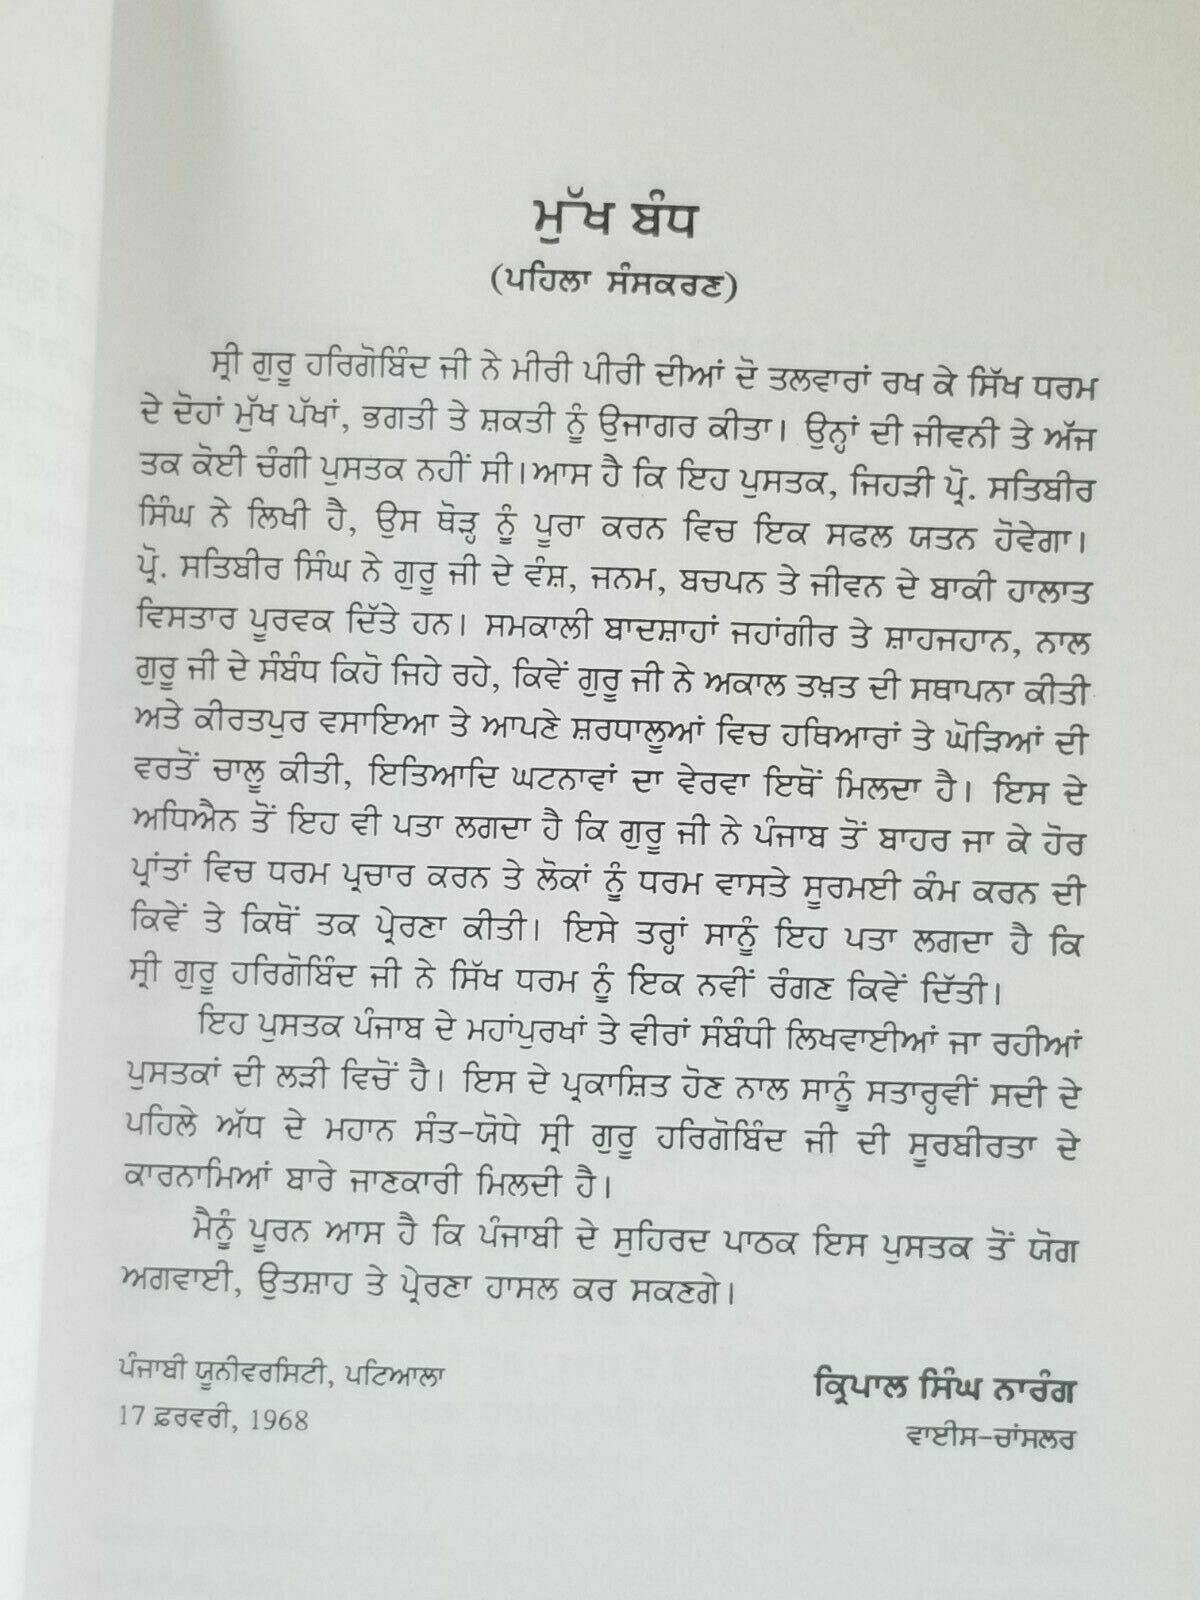 ਮੁੱਖ ਬੰਧ
(ਪਹਿਲਾ ਸੰਸਕਰਣ)
ਸ੍ਰੀ ਗੁਰੂ ਹਰਿਗੋਬਿੰਦ ਜੀ ਨੇ ਮੀਰੀ ਪੀਰੀ ਦੀਆਂ ਦੋ ਤਲਵਾਰਾਂ ਰਖ ਕੇ ਸਿੱਖ ਧਰਮ
ਦੇ ਦੋਹਾਂ ਮੁੱਖ ਪੱਖਾਂ, ਭਗਤੀ ਤੇ ਸ਼ਕਤੀ ਨੂੰ ਉਜਾਗਰ ਕੀਤਾ। ਉਨ੍ਹਾਂ ਦੀ ਜੀਵਨੀ ਤੇ ਅੱਜ
ਤਕ ਕੋਈ ਚੰਗੀ ਪੁਸਤਕ ਨਹੀਂ ਸੀ। ਆਸ ਹੈ ਕਿ ਇਹ ਪੁਸਤਕ, ਜਿਹੜੀ ਪ੍ਰੋ. ਸਤਿਬੀਰ
ਸਿੰਘ ਨੇ ਲਿਖੀ ਹੈ, ਉਸ ਥੋੜ੍ਹ ਨੂੰ ਪੂਰਾ ਕਰਨ ਵਿਚ ਇਕ ਸਫਲ ਯਤਨ ਹੋਵੇਗਾ।
ਪ੍ਰੋ. ਸਤਿਬੀਰ ਸਿੰਘ ਨੇ ਗੁਰੂ ਜੀ ਦੇ ਵੰਸ਼, ਜਨਮ, ਬਚਪਨ ਤੇ ਜੀਵਨ ਦੇ ਬਾਕੀ ਹਾਲਾਤ
ਵਿਸਤਾਰ ਪੂਰਵਕ ਦਿੱਤੇ ਹਨ। ਸਮਕਾਲੀ ਬਾਦਸ਼ਾਹਾਂ ਜਹਾਂਗੀਰ ਤੇ ਸ਼ਾਹਜਹਾਨ, ਨਾਲ
ਗੁਰੂ ਜੀ ਦੇ ਸੰਬੰਧ ਕਿਹੋ ਜਿਹੇ ਰਹੇ, ਕਿਵੇਂ ਗੁਰੂ ਜੀ ਨੇ ਅਕਾਲ ਤਖ਼ਤ ਦੀ ਸਥਾਪਨਾ ਕੀਤੀ
ਅਤੇ ਕੀਰਤਪੁਰ ਵਸਾਇਆ ਤੇ ਆਪਣੇ ਸ਼ਰਧਾਲੂਆਂ ਵਿਚ ਹਥਿਆਰਾਂ ਤੇ ਘੋੜਿਆਂ ਦੀ
ਵਰਤੋਂ ਚਾਲੂ ਕੀਤੀ, ਇਤਿਆਦਿ ਘਟਨਾਵਾਂ ਦਾ ਵੇਰਵਾ ਇਥੋਂ ਮਿਲਦਾ ਹੈ। ਇਸ ਦੇ
ਅਧਿਐਨ ਤੋਂ ਇਹ ਵੀ ਪਤਾ ਲਗਦਾ ਹੈ ਕਿ ਗੁਰੂ ਜੀ ਨੇ ਪੰਜਾਬ ਤੋਂ ਬਾਹਰ ਜਾ ਕੇ ਹੋਰ
ਪ੍ਰਾਂਤਾਂ ਵਿਚ ਧਰਮ ਪ੍ਰਚਾਰ ਕਰਨ ਤੇ ਲੋਕਾਂ ਨੂੰ ਧਰਮ ਵਾਸਤੇ ਸੂਰਮਈ ਕੰਮ ਕਰਨ ਦੀ
ਕਿਵੇਂ ਤੇ ਕਿਥੋਂ ਤਕ ਪ੍ਰੇਰਣਾ ਕੀਤੀ। ਇਸੇ ਤਰ੍ਹਾਂ ਸਾਨੂੰ ਇਹ ਪਤਾ ਲਗਦਾ ਹੈ ਕਿ
ਸ੍ਰੀ ਗੁਰੂ ਹਰਿਗੋਬਿੰਦ ਜੀ ਨੇ ਸਿੱਖ ਧਰਮ ਨੂੰ ਇਕ ਨਵੀਂ ਰੰਗਣ ਕਿਵੇਂ ਦਿੱਤੀ।
ਇਹ ਪੁਸਤਕ ਪੰਜਾਬ ਦੇ ਮਹਾਂਪੁਰਖਾਂ ਤੇ ਵੀਰਾਂ ਸੰਬੰਧੀ ਲਿਖਵਾਈਆਂ ਜਾ ਰਹੀਆਂ
ਪੁਸਤਕਾਂ ਦੀ ਲੜੀ ਵਿਚੋਂ ਹੈ। ਇਸ ਦੇ ਪ੍ਰਕਾਸ਼ਿਤ ਹੋਣ ਨਾਲ ਸਾਨੂੰ ਸਤਾਰ੍ਹਵੀਂ ਸਦੀ ਦੇ
ਪਹਿਲੇ ਅੱਧ ਦੇ ਮਹਾਨ ਸੰਤ-ਯੋਧੇ ਸ੍ਰੀ ਗੁਰੂ ਹਰਿਗੋਬਿੰਦ ਜੀ ਦੀ ਸੂਰਬੀਰਤਾ ਦੇ
ਕਾਰਨਾਮਿਆਂ ਬਾਰੇ ਜਾਣਕਾਰੀ ਮਿਲਦੀ ਹੈ।
ਮੈਨੂੰ ਪੂਰਨ ਆਸ ਹੈ ਕਿ ਪੰਜਾਬੀ ਦੇ ਸੁਹਿਰਦ ਪਾਠਕ ਇਸ ਪੁਸਤਕ ਤੋਂ ਯੋਗ
ਅਗਵਾਈ, ਉਤਸ਼ਾਹ ਤੇ ਪ੍ਰੇਰਣਾ ਹਾਸਲ ਕਰ ਸਕਣਗੇ।
ਪੰਜਾਬੀ ਯੂਨੀਵਰਸਿਟੀ, ਪਟਿਆਲਾ
17 ਫ਼ਰਵਰੀ, 1968
ਕ੍ਰਿਪਾਲ ਸਿੰਘ ਨਾਰੰਗ
ਵਾਈਸ-ਚਾਂਸਲਰ